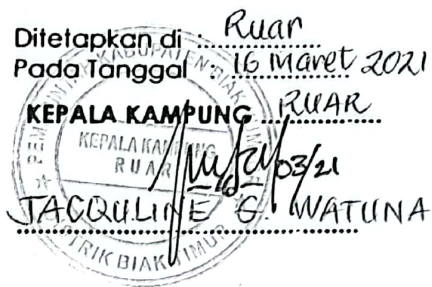 Ditetapkan di : Ruar
Pada Tanggal : 16 Maret 2021
KEPALA KAMPUNG RUAR
KEPALA KAMPUNG
RUAR
03/21
JACQULINE G. WATUNA
DISTRIK BIAK TIMUR